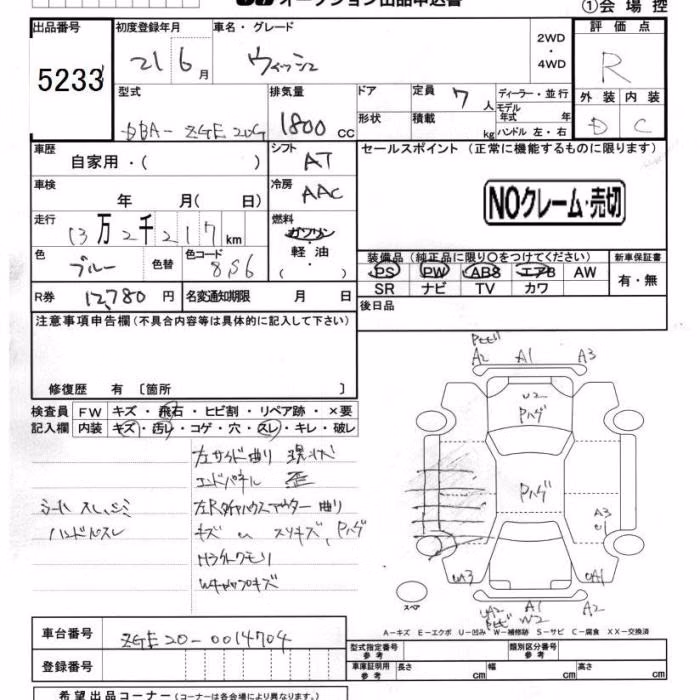 オークション出品申込書
①会場控
出品番号 初度登録年月 車名・グレード 評価点
5233 21 6 月 ウィッシュ 2WD・4WD R
型式 排気量 ドア 定員 7 人 ディーラー・並行 外装 内装
DBA-ZGE20G 1800 cc 形状 積載 kg モデル年式 年 ハンドル 左・右 D C
車歴 自家用・( ) シフト AT セールスポイント (正常に機能するものに限ります)
車検 年 月( 日) 冷房 AAC NOクレーム・売切
走行 13万2千217 km 燃料 ガソリン・軽油 ( )
色 ブルー 色替 色コード 8S6
装備品 (純正品に限り○をつけてください) 新車保証書
PS PW ABS エアB AW 有・無
SR ナビ TV カワ
R券 12,780 円 名変通知期限 月 日 後日品
注意事項申告欄 (不具合内容等は具体的に記入して下さい)
修復歴 有 〔箇所 〕
検査員 FW キズ・飛石・ヒビ割・リペア跡・×要
記入欄 内装 キズ・汚れ・コゲ・穴・スレ・キレ・破レ
左サイド曲り 現状
エンドパネル 歪
シート スレ、シミ
左Rタイヤハウスアウター 曲り
ハンドルスレ
キズ UA スリキズ, Pハゲ
Hライトクモリ
Wキャップキズ
A2 A1 A3
U2
Pハゲ
Pハゲ
A3
U1
UA3 UA1
スペア
UA2 A1 A2
W2
A-キズ E-エクボ U-凹み W-補修跡 S-サビ C-腐食 XX-交換済
車台番号 ZGE20-0014704
登録番号
型式指定番号 参考 類別区分番号 参考
車庫証明用 参考 長さ cm 幅 cm 高さ cm
希望出品コーナー (コーナーは各会場により異なります。)